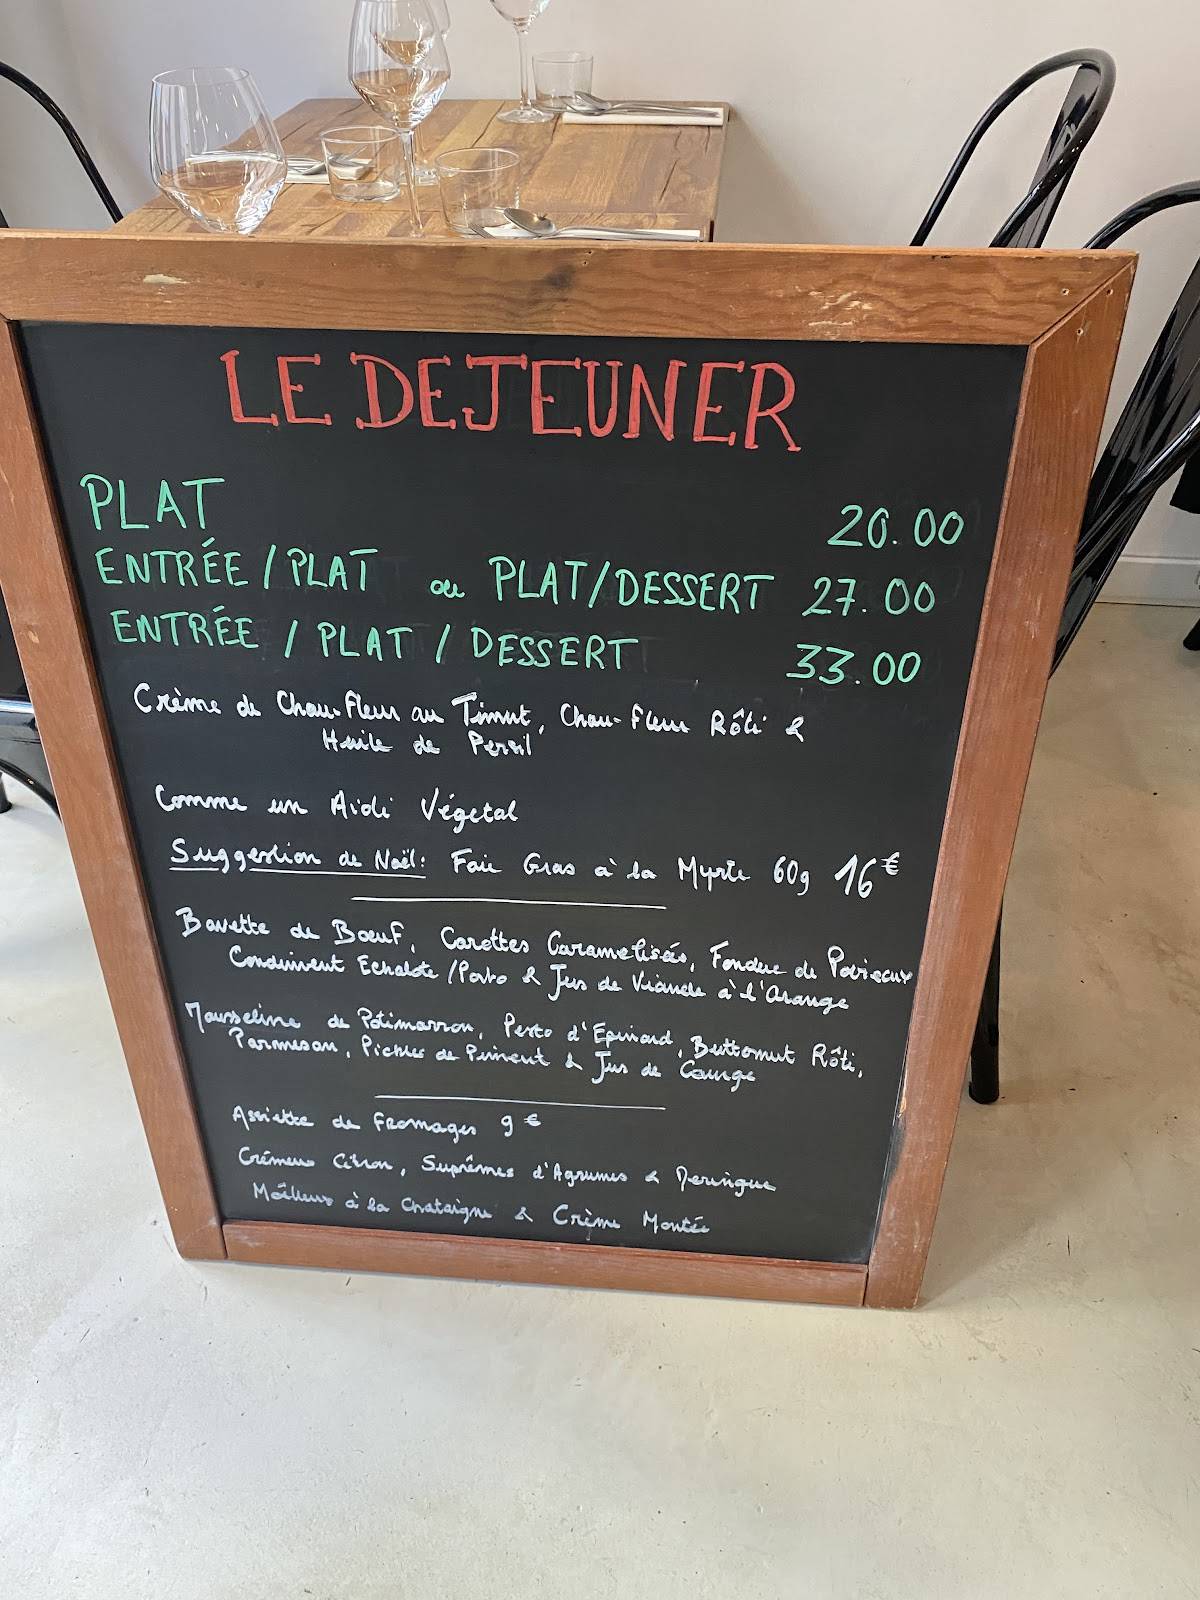 LE DEJEUNER
PLAT 20.00
ENTRÉE / PLAT ou PLAT/DESSERT 27.00
ENTRÉE / PLAT / DESSERT 33.00
Crème de Chou-Fleur au Timut, Chou-Fleur Rôti &
Huile de Persil
Comme un Aïoli Végétal
Suggestion de Noël: Foie Gras à la Myrte 60g 16€
Bavette de Bœuf, Carottes Caramelisés, Fondue de Poireaux
Condiment Echalote/Porto & Jus de Viande à l'Orange
Mousseline de Potimarron, Pesto d'Epinard, Buttornut Rôti,
Parmesan, Pickles de Piment & Jus de Courge
Assiette de Fromages 9€
Crémeux Citron, Suprêmes d'Agrumes & Meringue
Moëlleux à la Chataigne & Crème Montée